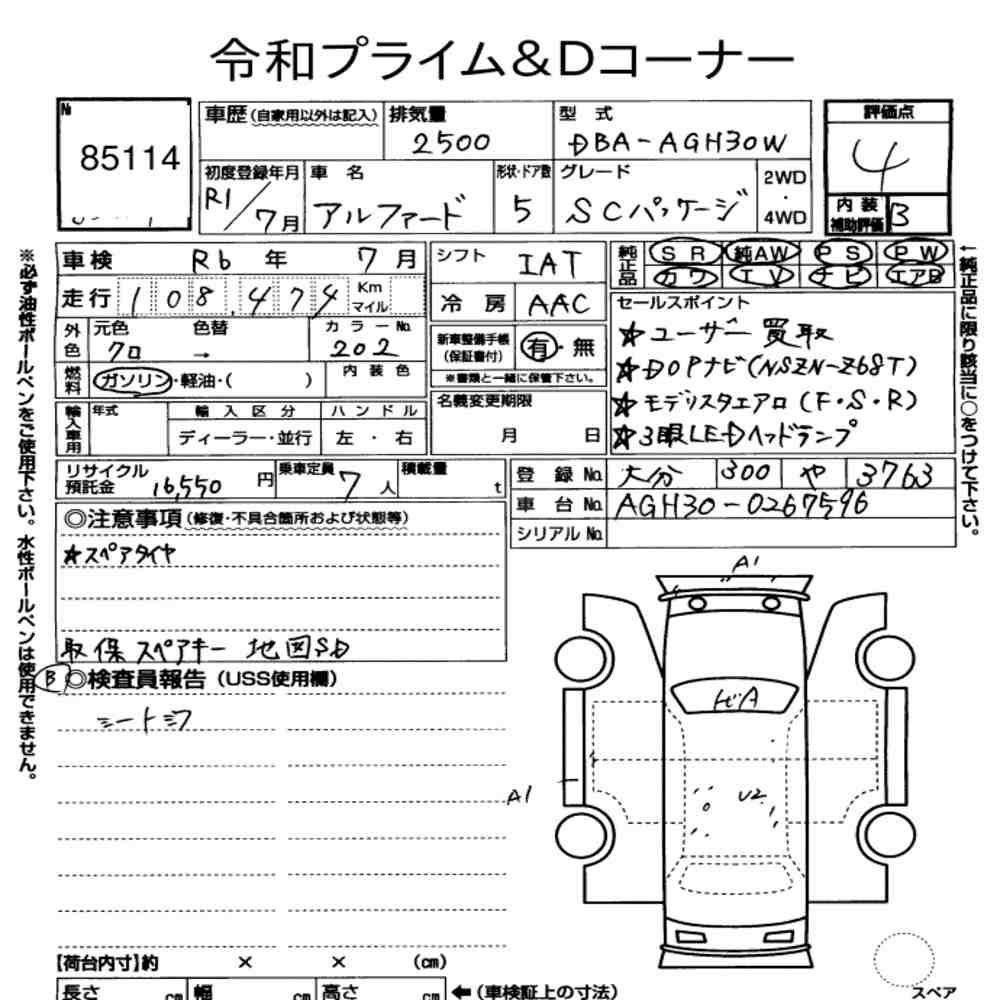 令和プライム&Dコーナー
№ 85114
車歴(自家用以外は記入) 排気量 2500 型式 DBA-AGH30W 評価点 4
初度登録年月 R1/7月 車名 アルファード 形状・ドア数 5 グレード SCパッケージ 2WD・4WD
内装補助評価 B
車検 R6年 7月 シフト IAT 純正品 SR 純AW PS PW
走行 108,474 Km マイル 冷房 AAC カワ TV ナビ エアB
外色 元色 クロ 色替 → カラーNo. 202
新車整備手帳(保証書付) 有・無
※書類と一緒に保管下さい。
燃料 ガソリン・軽油・( ) 内装色
セールスポイント
☆ユーザー買取
☆DOPナビ(NSZN-Z68T)
☆モデリスタエアロ(F・S・R)
☆3眼LEDヘッドランプ
輸入車用 年式 輸入区分 ハンドル
ディーラー・並行 左・右
名義変更期限 月 日
リサイクル預託金 16,550円 乗車定員 7人 積載量 t
登録No. 大分 300 や 3763
車台No. AGH30-0267596
シリアルNo.
◎注意事項(修復・不具合箇所および状態等)
☆スペアタイヤ
取保スペアキー 地図SD
B ◎検査員報告(USS使用欄)
シートシワ
A1
A1
U2
【荷台内寸】約 × × (cm)
長さ cm 幅 cm 高さ cm ←(車検証上の寸法)
スペア
※必ず油性ボールペンをご使用下さい。水性ボールペンは使用できません。
←純正品に限り該当に○をつけて下さい。